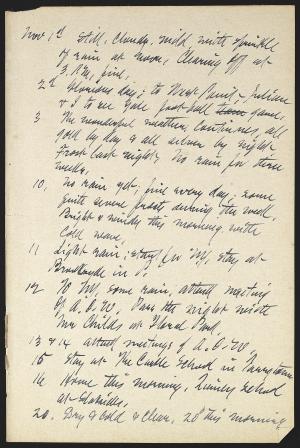 Nov 1st Still, Cloudy, mild, with sprinkle
of rain at noon, Clearing off at
3. P.M., fine,
2d Glorious day; to West Point - Julian
& I to see Yale foot-ball team game,
3 The wonderful weather continues, all
gold by day & all silver by night.
Frost last night, No rain for three
weeks,
10, No rain yet, fine every day; some
quite severe frosts during the week,
Bright & windy this morning with
cold wave,
11 Light rain; start for NY, stay at
in
12 NY, some rain, attend meeting
of A.O.U. Pass the night with
Mr Childs at Floral Park,
13 & 14 attend meetings of A.O.U.
15 Stay at The Castle School in Tarrytown
16 Home this morning, School
at
20. Dry & cold & clear, 20° this morning